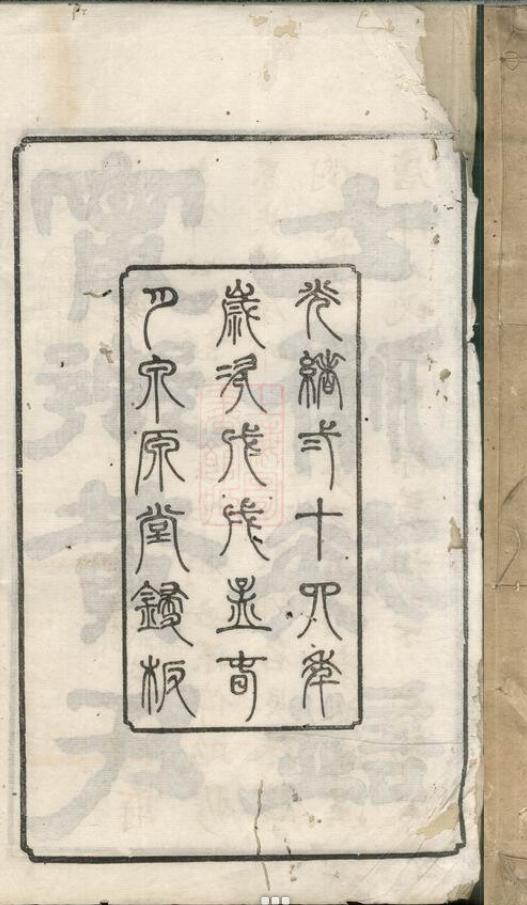 光緒弍十四年
歲次戊戌孟春
原堂鐫板